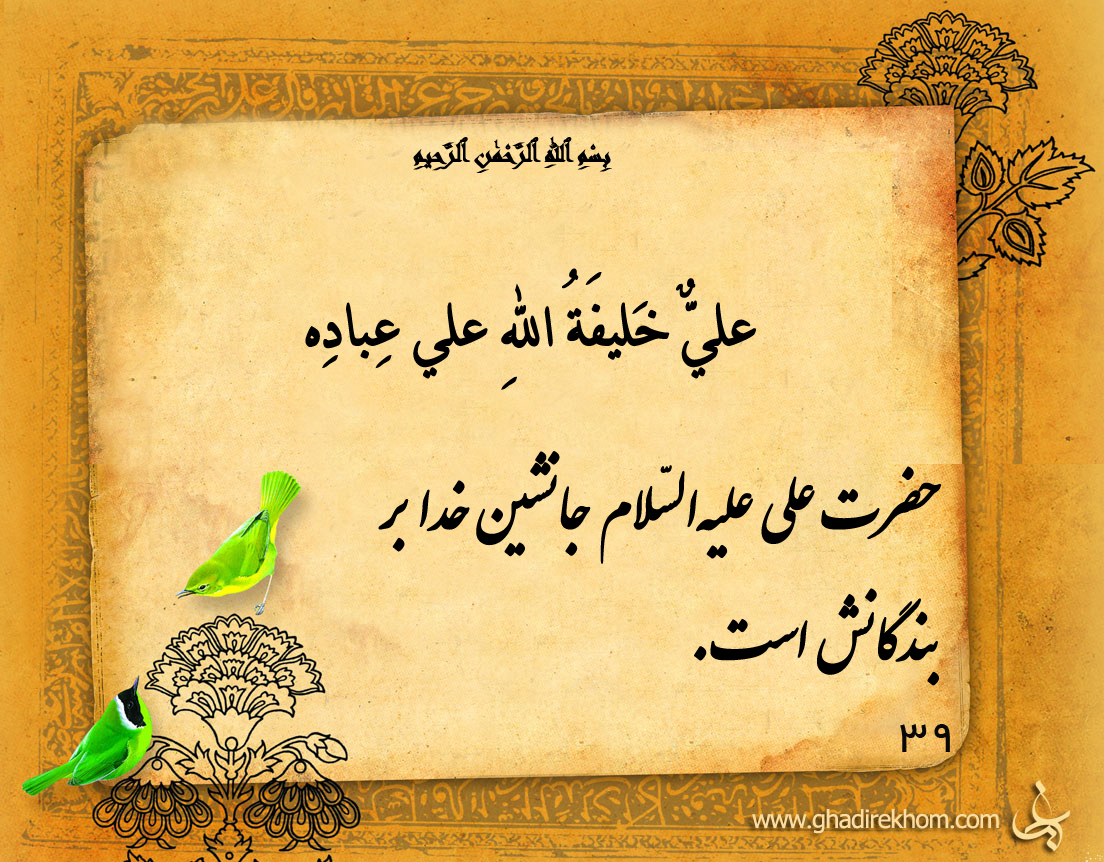 بِسْمِ اللهِ الرَّحْمٰنِ الرَّحِيمِ
عليٌّ خَليفَةُ اللهِ علي عِبادِه
حضرت علی علیه‌السّلام جانشین خدا بر
بندگانش است.
٣٩
www.ghadirekhom.com